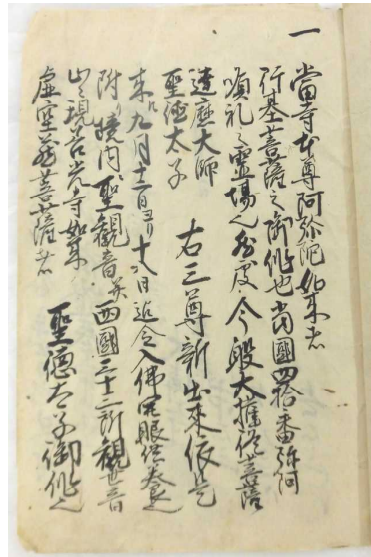 一 當寺本尊阿弥陀如来者
行基菩薩之御作也当國四拾番弥陀
順礼之霊場今般大権現菩薩
達磨大師
聖徳太子 右三尊新出来依是
来ル九月十二日ヨリ十八日迄令入佛開眼供養
附り境内聖観音并西國三十三所観世音
山之現善光寺如来
虚空蔵菩薩者 聖徳太子御作也